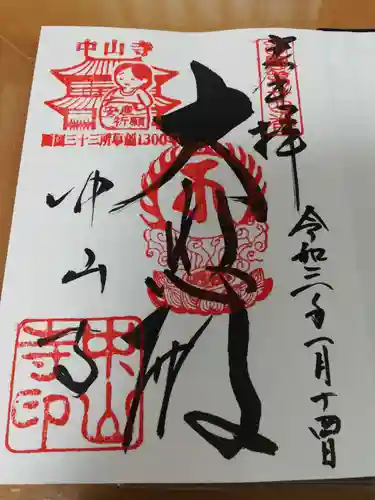 奉拝
令和二年一月十四日
大悲殿
中山寺
安産
祈願
西国三十三所草創1300年
中山寺
中山寺印